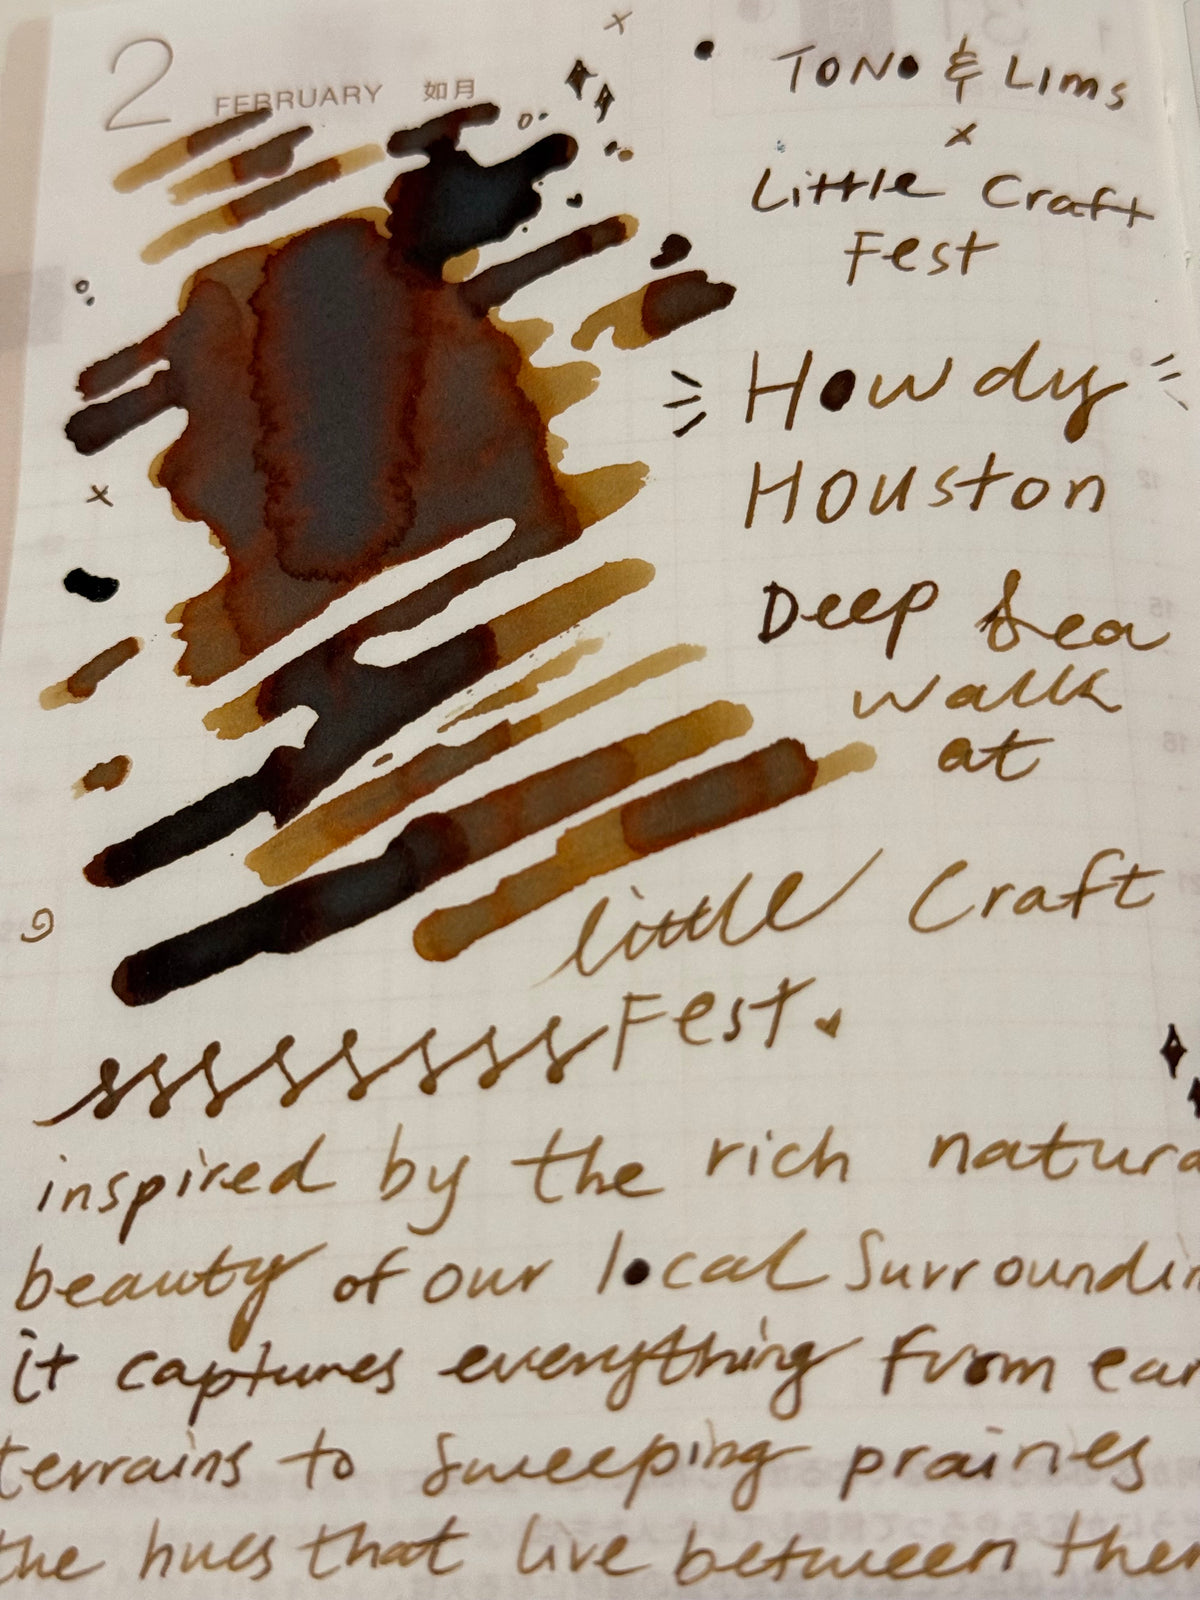 2 FEBRUARY 如月
TONO & Lims
x
Little Craft
Fest
Howdy
Houston
Deep Sea
walk
at
little Craft
Fest
inspired by the rich natura
beauty of our local Surroundin
it captures everything from ear
terrains to sweeping prairies
the hues that live between them